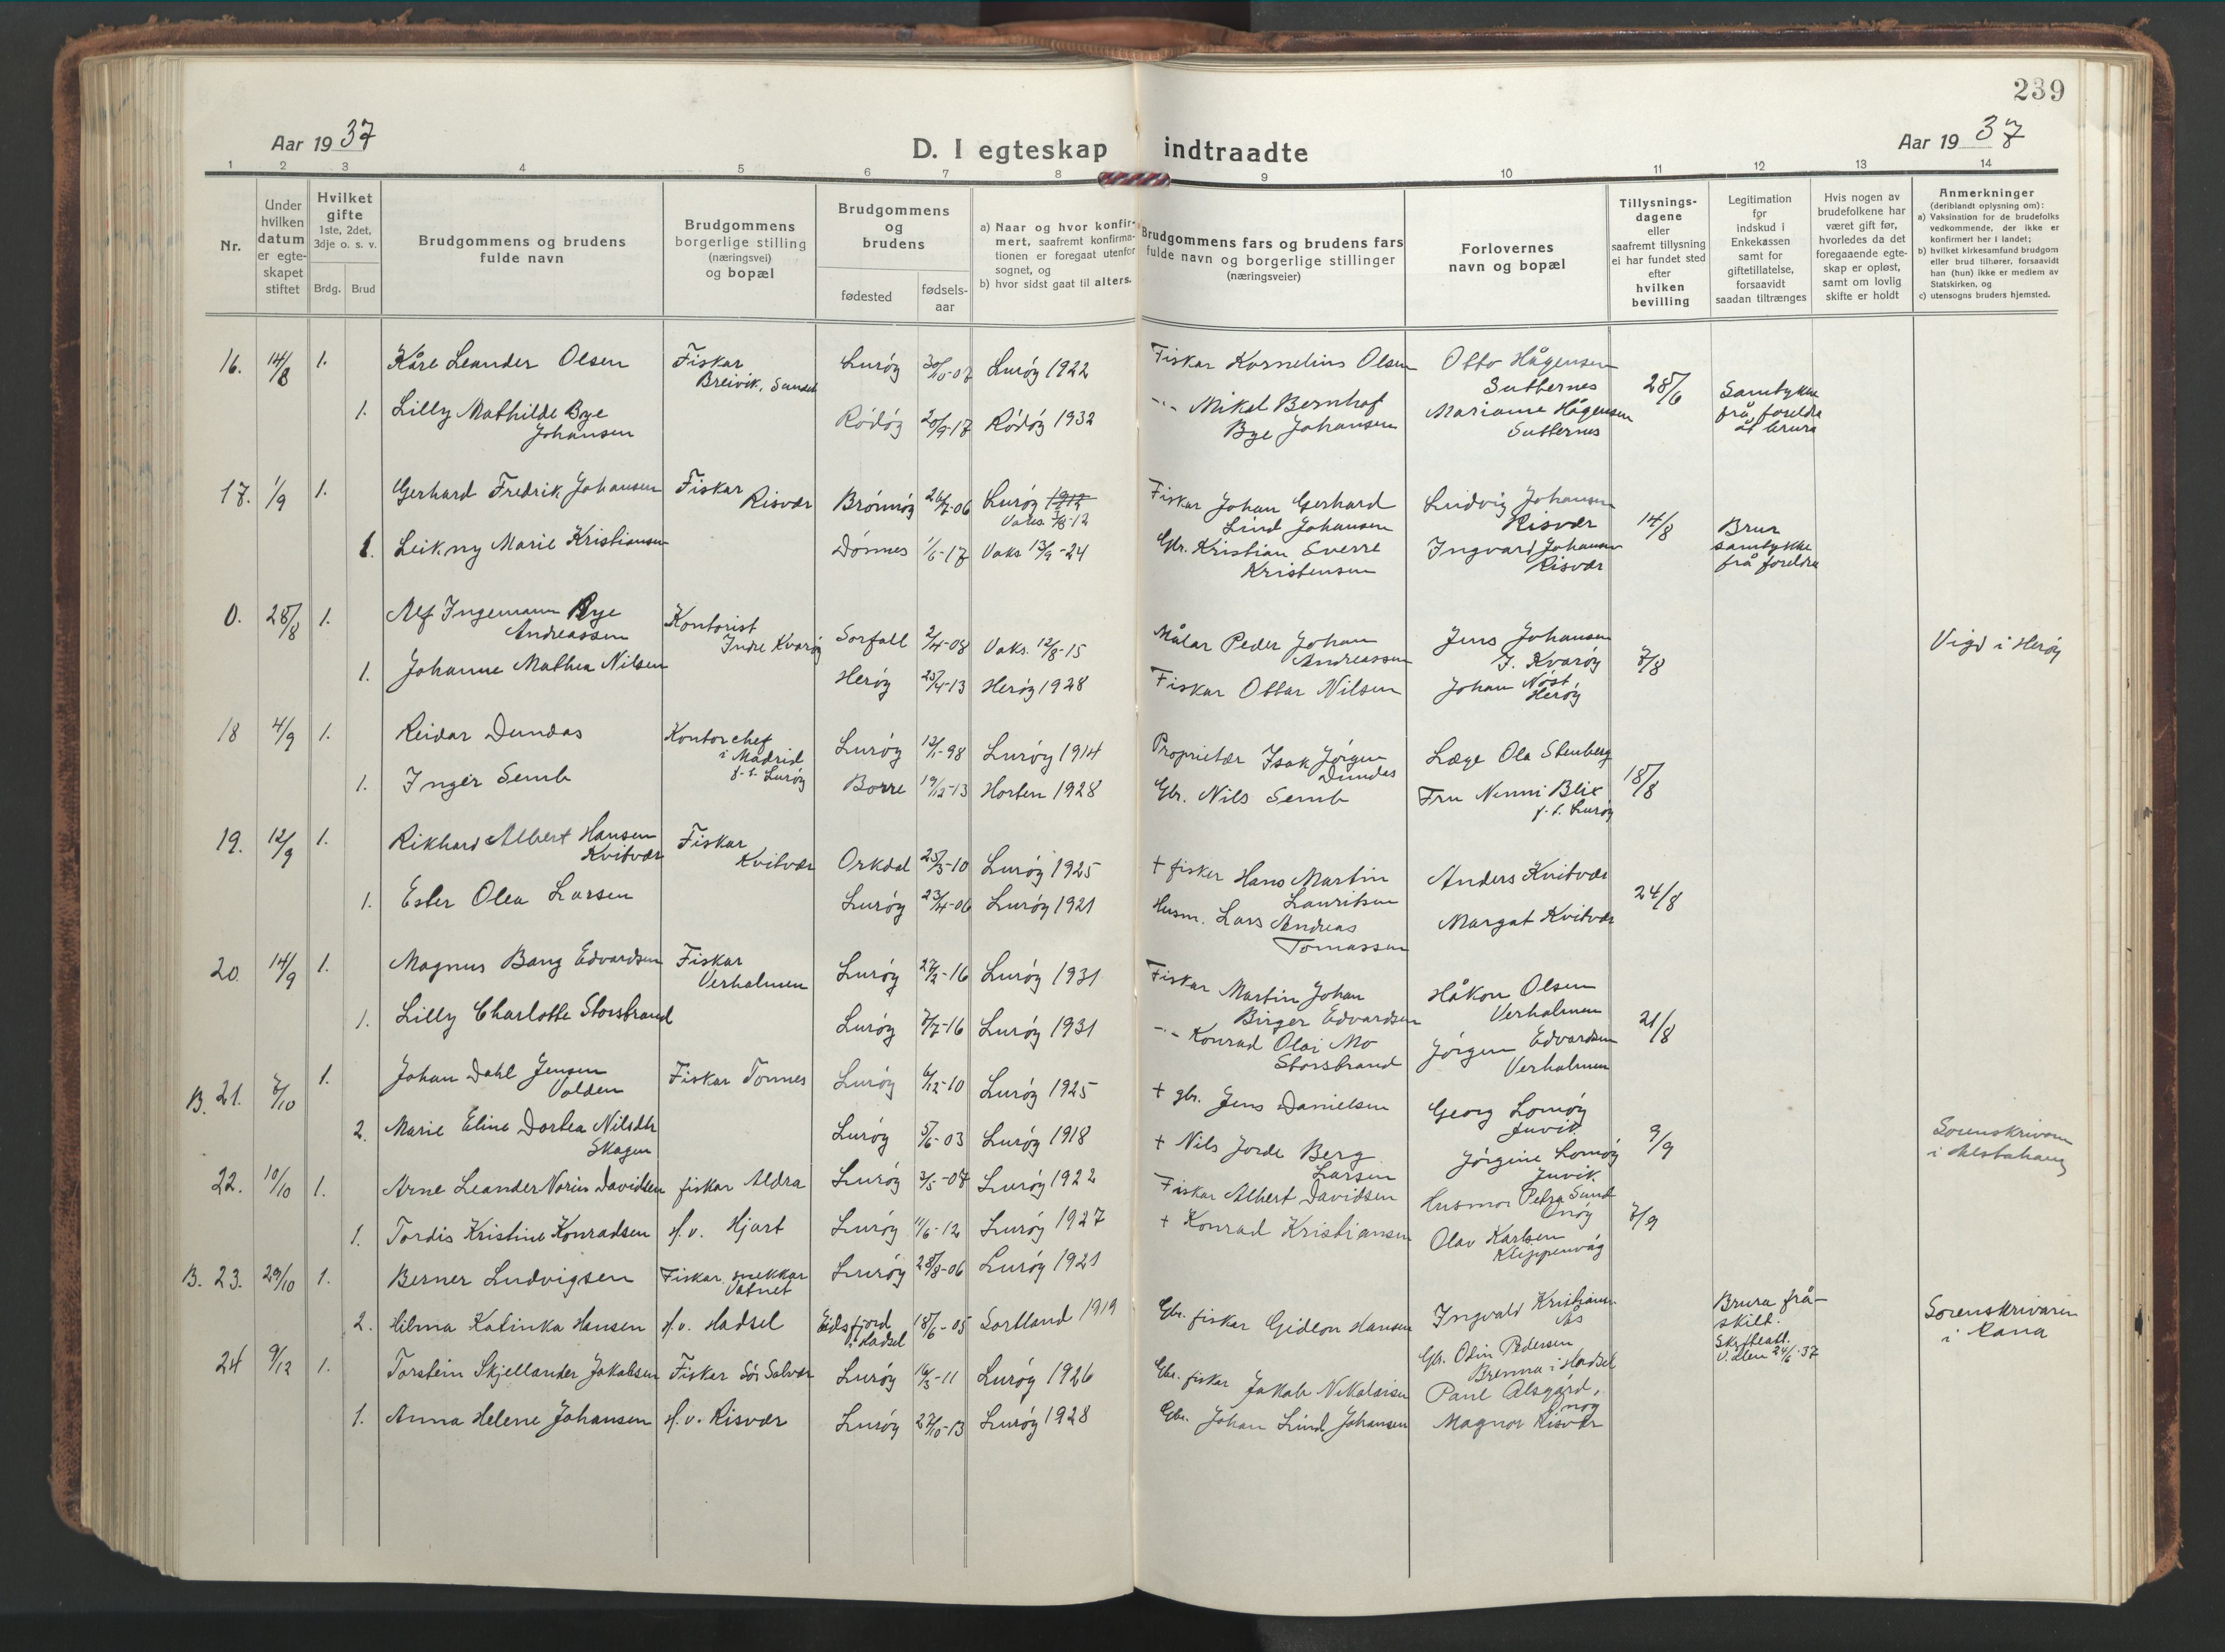 239
Aar 1937
D. I egteskap indtraadte
Aar 1937
1 2 3 4 5 6 7 8 9 10 11 12 13 14
Nr.
Under
hvilken
datum
er egte-
skapet
stiftet
Hvilket
gifte
1ste, 2det,
3dje o. s. v.
Brdg. Brud
Brudgommens og brudens
fulde navn
Brudgommens
borgerlige stilling
(næringsvei)
og bopæl
Brudgommens
og
brudens
fødested
fødsels-
aar
a) Naar og hvor konfir-
mert, saafremt konfirma-
tionen er foregaat utenfor
sognet, og
b) hvor sidst gaat til alters.
Brudgommens fars og brudens fars
fulde navn og borgerlige stillinger
(næringsveier)
Forlovernes
navn og bopæl
Tillysnings-
dagene
eller
saafremt tillysning
ei har fundet sted
efter
hvilken
bevilling
Legitimation
for
indskud i
Enkekassen
samt for
giftetillatelse,
forsaavidt
saadan tiltrænges
Hvis nogen av
brudefolkene har
været gift før,
hvorledes da det
foregaaende egte-
skap er opløst,
samt om lovlig
skifte er holdt
Anmerkninger
(deriblandt oplysning om):
a) Vaksination for de brudefolks
vedkommende, der ikke er
konfirmert her i landet;
b) hvilket kirkesamfund brudgom
eller brud tilhører, forsaavidt
han (hun) ikke er medlem av
Statskirken, og
c) utensogns bruders hjemsted.
16. 14/8 1. Kåre Leander Olsen Fiskar Lurøy 30/10-07 Lurøy 1922 Fiskar Kornelius Olsen Otto Hågensen
Breivik, Sundet Sutternes 28/6 Samtykke
1. Lilly Mathilde Bye Rødøy 20/9-17 Rødøy 1932 Mikal Bernhof Marianne Hågensen frå foreldre
Johansen Bye Johansen Sutternes åt brura
17. 1/9 1. Gerhard Fredrik Johansen Fiskar Brønnøy 26/7-06 Lurøy 1912 Fiskar Johan Gerhard Ludvig Johansen
Risvær Vaks. 3/8-12 Lind Johansen Risvær 14/8 Brur
1. Leikny Marie Kristiansen Dønnes 1/6-17 Vaks 13/9-24 Gbr. Kristian Sverre Ingvard Johansen samtykke
Kristensen Risvær frå foreldre
0. 28/8 1. Alf Ingemann Bye Kontorist Sørfall 2/4-08 Vaks. 12/8-15 Målar Peder Johan Jens Johansen Vigd i Herøy
Andreassen Indre Kvarøy Andreassen I. Kvarøy 7/8
1. Johanne Mathea Nilsen Herøy 25/4-13 Herøy 1928 Fiskar Ottar Nilsen Johan Nøst
Herøy
18 4/9 1. Reidar Dundas Kontorchef Lurøy 12/1-98 Lurøy 1914 Proprietær Isak Jørgen Læge Ola Stenberg
i Madrid Dundas 18/8
f. t. Lurøy
1. Inger Semb Borre 19/12-13 Horten 1928 Gbr. Nils Semb Fru Nenni Blix
f. t. Lurøy
19. 12/9 1. Rikhard Albert Hansen Fiskar Orkdal 25/3-10 Lurøy 1925 + fisker Hans Martin Anders Kvitvær
Kvitvær Kvitvær Lauritsen 24/8
1. Ester Olea Larsen Lurøy 23/4-06 Lurøy 1921 Husm. Lars Andreas Margat Kvitvær
Tomassen
20. 14/9 1. Magnus Bang Edvardsen Fiskar Lurøy 27/2-16 Lurøy 1931 Fiskar Martin Johan Håkon Olsen
Verholmen Birger Edvardsen Verholmen 21/8
1. Lilly Charlotte Storstrand Lurøy 7/7-16 Lurøy 1931 Konrad Olai Mo Jørgen Edvardsen
Storstrand Verholmen
B. 21. 7/10 1. Johan Dahl Jensen Fiskar Tonnes Lurøy 6/12-10 Lurøy 1925 + gbr. Jens Danielsen Georg Lomøy
Valden Juvik 9/9 Sorenskrivaren
2. Marie Eline Dortea Nilsdtr Lurøy 5/6-03 Lurøy 1918 + Nils Jorde Berg Jørgine Lomøy i Alstahaug
Skagen Larsen Juvik
22. 10/10 1. Arne Leander Norin Davidsen fiskar Aldra Lurøy 3/5-07 Lurøy 1922 Fiskar Albert Davidsen Husmor Petra Sund
Onøy 7/9
1. Tordis Kristine Konradsen H.v. Hjart Lurøy 11/6-12 Lurøy 1927 + Konrad Kristiansen Olav Karlsen
Klippenvåg
B. 23. 29/10 1. Berner Ludvigsen Fiskar, snekkar Lurøy 28/8-06 Lurøy 1921 Ingvald Kristiansen Brura frå- Sorenskrivaren
Vatnet Ås skilt. i Rana
2. Hilma Katinka Hansen H.v. Hadsel Eidsfjord 18/6-05 Sortland 1919 Gbr. fiskar Gideon Hansen Gbr. Odin Pedersen Skifteatt.
i Hadsel Brenna i Hadsel 24/6-37
24 9/12 1. Torstein Skjellander Jakobsen Fiskar Sør Solvær Lurøy 16/3-11 Lurøy 1926 Gbr. fiskar Jakob Nikolaisen Paul Alsgård,
Onøy
1. Anna Helene Johansen H.v. Risvær Lurøy 27/10-13 Lurøy 1928 Gbr. Johan Lind Johansen Magnor Risvær